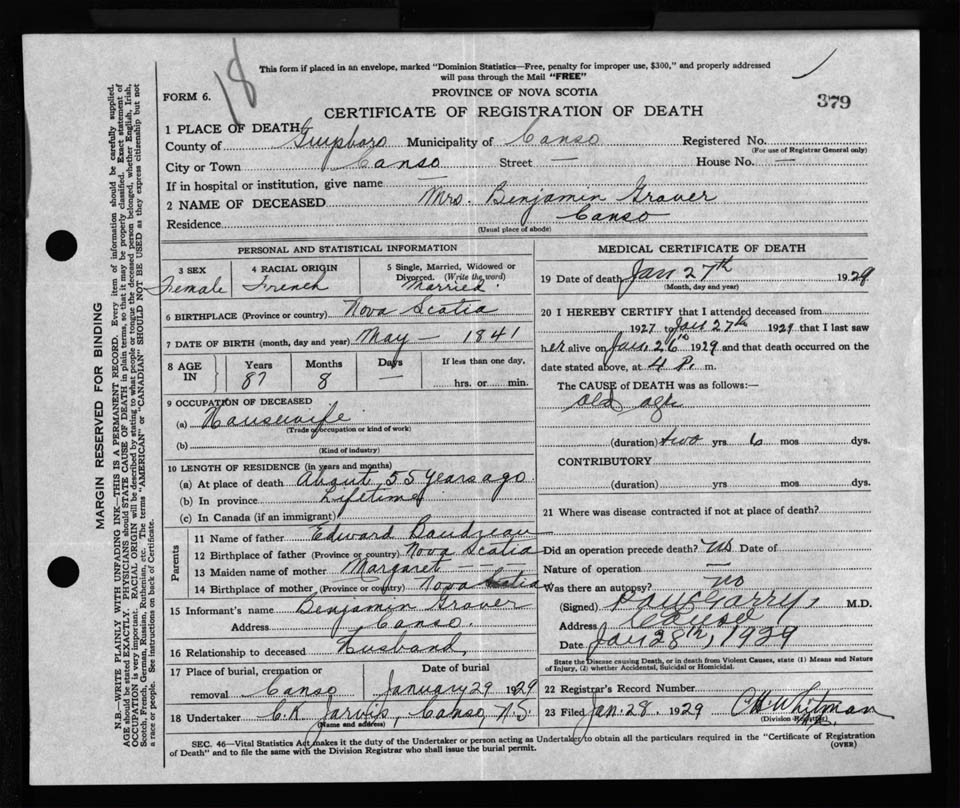 18
This form if placed in an envelope, marked "Dominion Statistics—Free, penalty for improper use, $300," and properly addressed
will pass through the Mail "FREE"
FORM 6.
PROVINCE OF NOVA SCOTIA
379
CERTIFICATE OF REGISTRATION OF DEATH
1 PLACE OF DEATH
County of Guysboro Municipality of Canso Registered No.
(For use of Registrar General only)
City or Town Canso Street — House No. —
If in hospital or institution, give name —
2 NAME OF DECEASED Mrs. Benjamin Grover
Residence Canso
(Usual place of abode)
PERSONAL AND STATISTICAL INFORMATION
3 SEX 4 RACIAL ORIGIN 5 Single, Married, Widowed or
Divorced. (Write the word)
Female French Married
6 BIRTHPLACE (Province or country) Nova Scotia
7 DATE OF BIRTH (month, day and year) May — 1841
8 AGE IN Years Months Days If less than one day,
87 8 — hrs. or min.
9 OCCUPATION OF DECEASED
(a) Housewife
(Trade occupation or kind of work)
(b)
(Kind of industry)
10 LENGTH OF RESIDENCE (in years and months)
(a) At place of death About 55 Years ago
(b) In province Lifetime
(c) In Canada (if an immigrant)
Parents
11 Name of father Edward Boudreau
12 Birthplace of father (Province or country) Nova Scotia
13 Maiden name of mother Margaret — —
14 Birthplace of mother (Province or country) Nova Scotia
15 Informant's name Benjamin Grover
Address Canso
16 Relationship to deceased Husband,
17 Place of burial, cremation or Date of burial
removal Canso January 29 1929
18 Undertaker C.K. Jarvis, Canso, N.S
(Name and address)
MEDICAL CERTIFICATE OF DEATH
19 Date of death Jan 27th 1929
(Month, day and year)
20 I HEREBY CERTIFY that I attended deceased from
1927 to Jan 27th 1929 that I last saw
her alive on Jan. 26th 1929 and that death occurred on the
date stated above, at 4 P. m.
The CAUSE of DEATH was as follows:—
old age
(duration) two yrs 6 mos dys.
CONTRIBUTORY
(duration) yrs mos dys.
21 Where was disease contracted if not at place of death?
Did an operation precede death? no Date of
Nature of operation —
Was there an autopsy? no
(Signed) M.D.
Address Canso
Date Jan 28th, 1929
State the Disease causing Death, or in death from Violent Causes, state (1) Means and Nature
of Injury, (2) whether Accidental, Suicidal or Homicidal.
22 Registrar's Record Number
23 Filed Jan. 28 1929 Whitman
(Division Registrar)
SEC. 46—Vital Statistics Act makes it the duty of the Undertaker or person acting as Undertaker to obtain all the particulars required in the "Certificate of Registration
of Death" and to file the same with the Division Registrar who shall issue the burial permit.
(OVER)
MARGIN RESERVED FOR BINDING
N.B.—WRITE PLAINLY WITH UNFADING INK—THIS IS A PERMANENT RECORD. Every item of information should be carefully supplied.
AGE should be stated EXACTLY. PHYSICIANS should STATE CAUSE OF DEATH in plain terms, so that it may be properly classified. Exact statement of
OCCUPATION is very important. RACIAL ORIGIN will be described by stating to what people or tongue the deceased person belonged, whether English, Irish,
Scotch, French, German, Russian, Ruthenian, etc. The terms "AMERICAN" or "CANADIAN" SHOULD NOT BE USED as they express citizenship but not
a race or people. See instructions on back of Certificate.